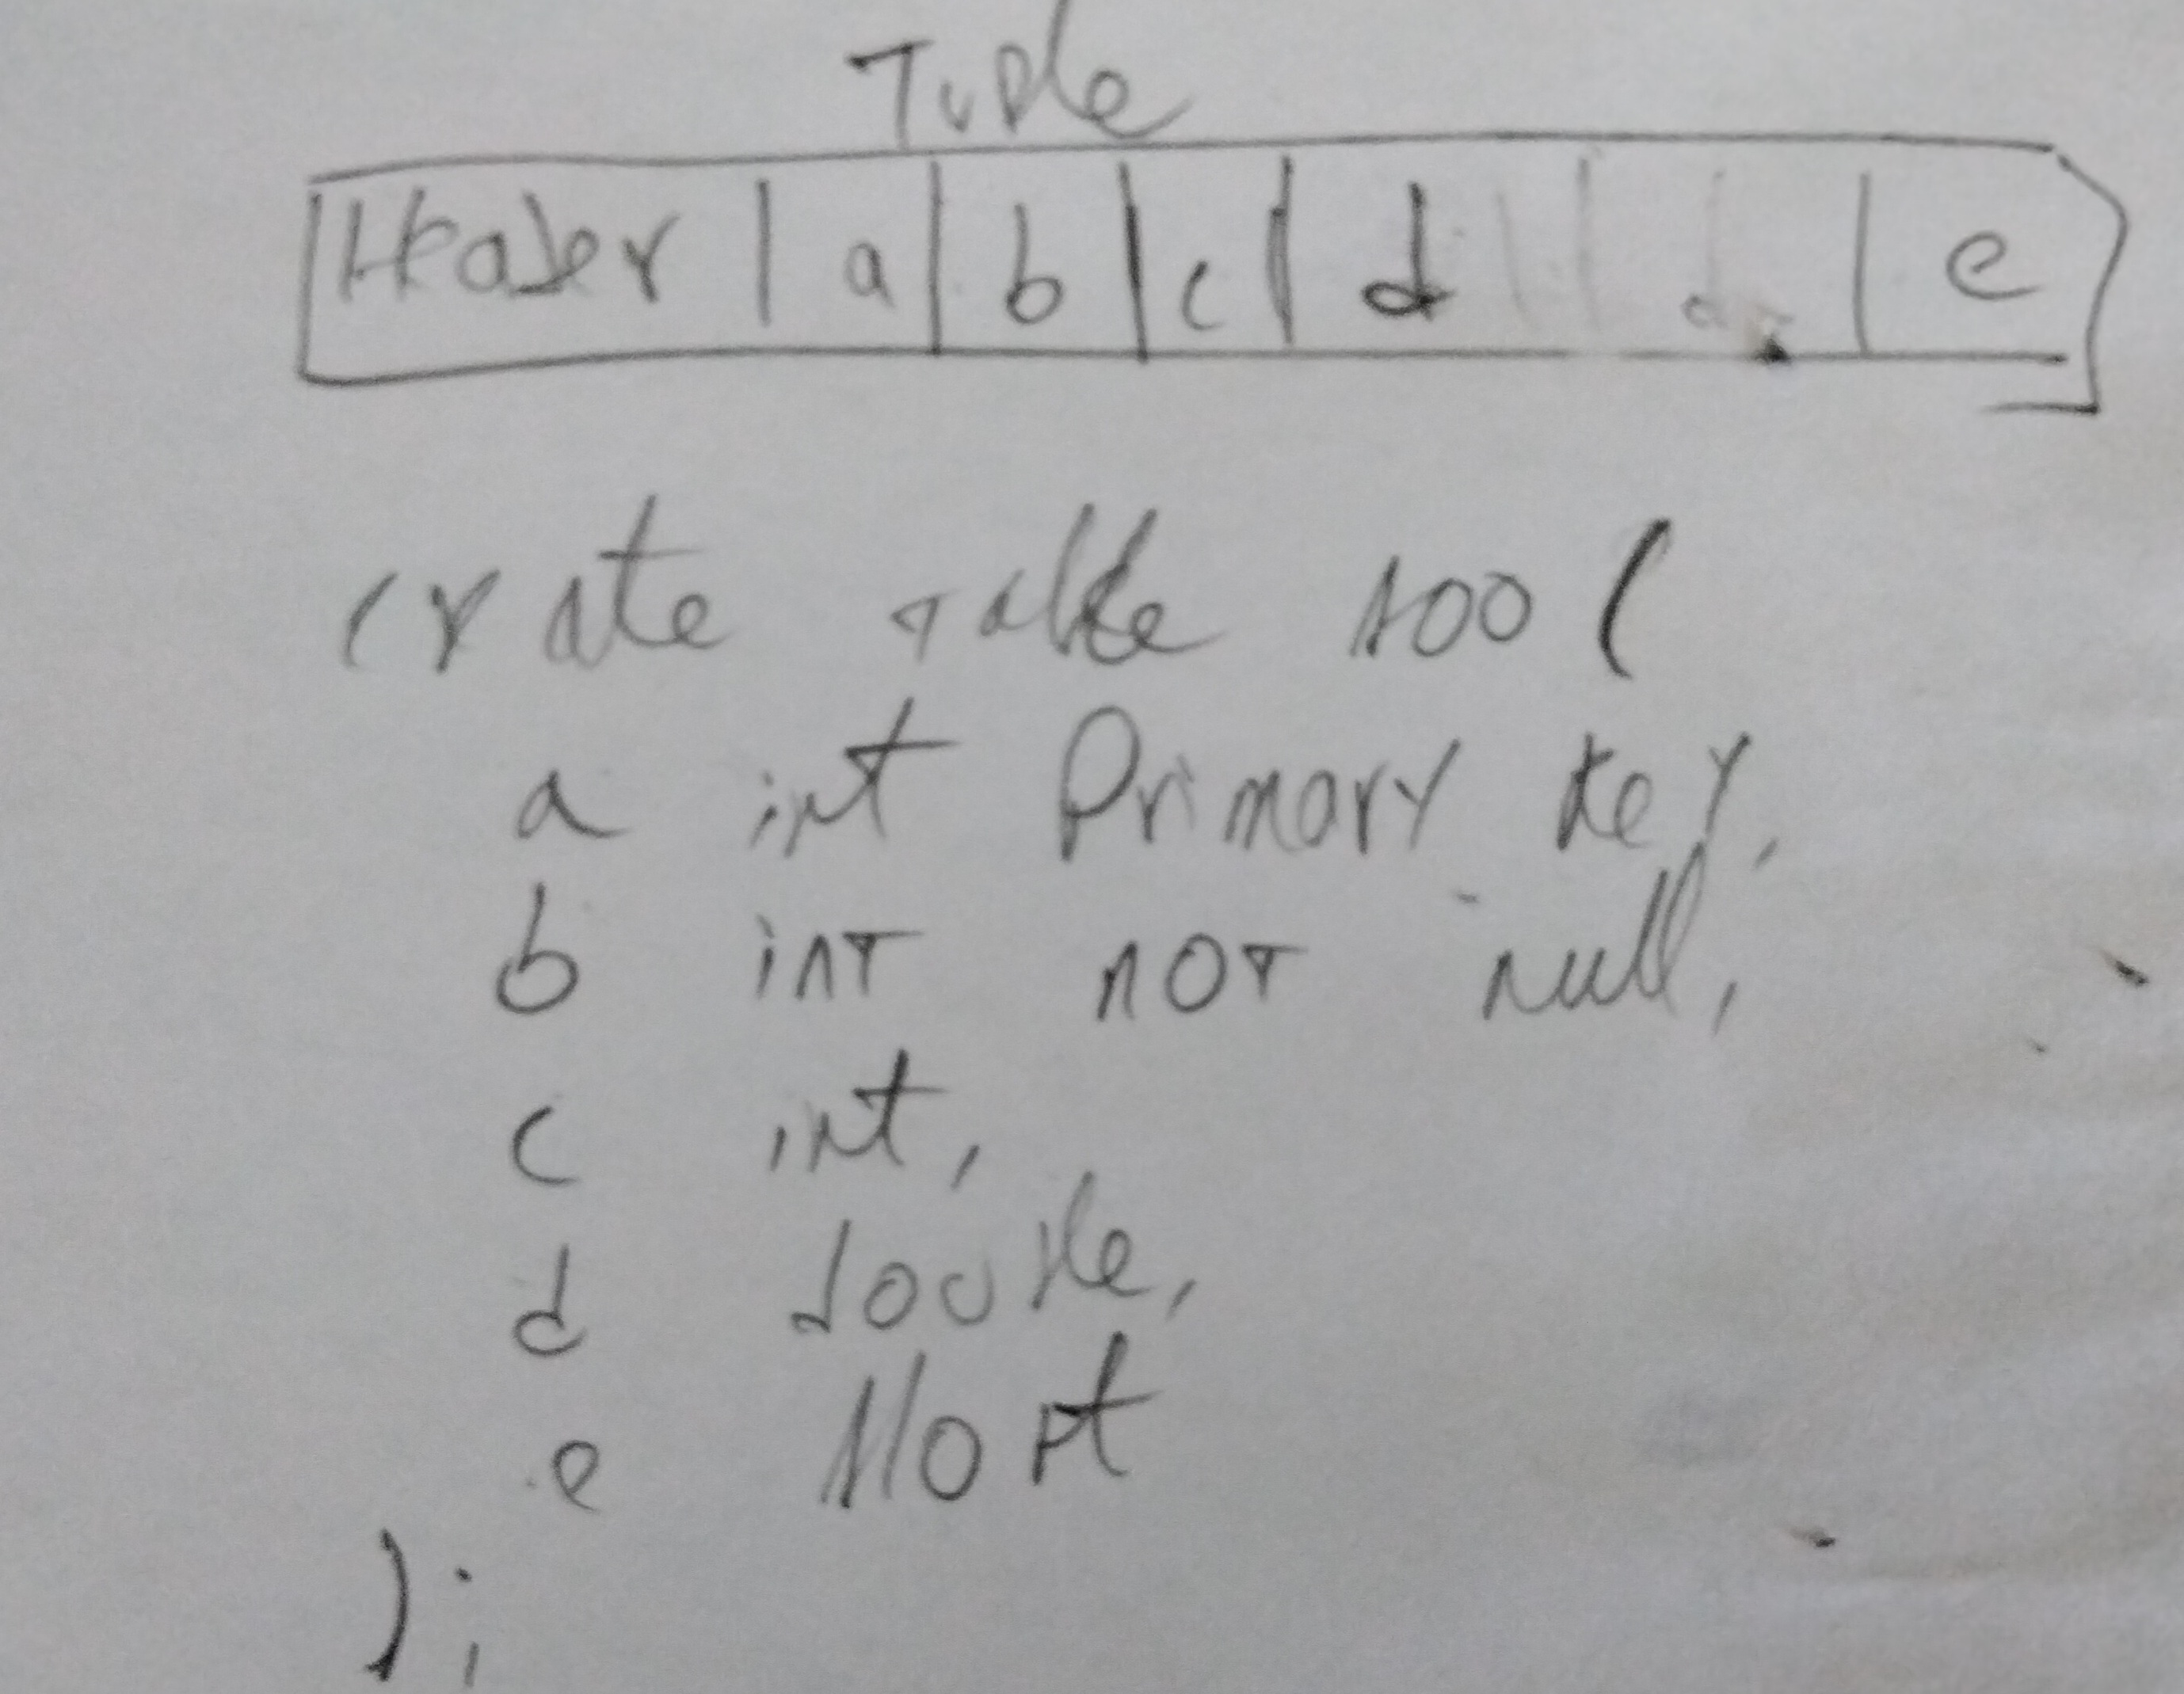 Tuple
Header | a | b | c | d | e
create table foo (
a int Primary key,
b int not null,
c int,
d double,
e float
);